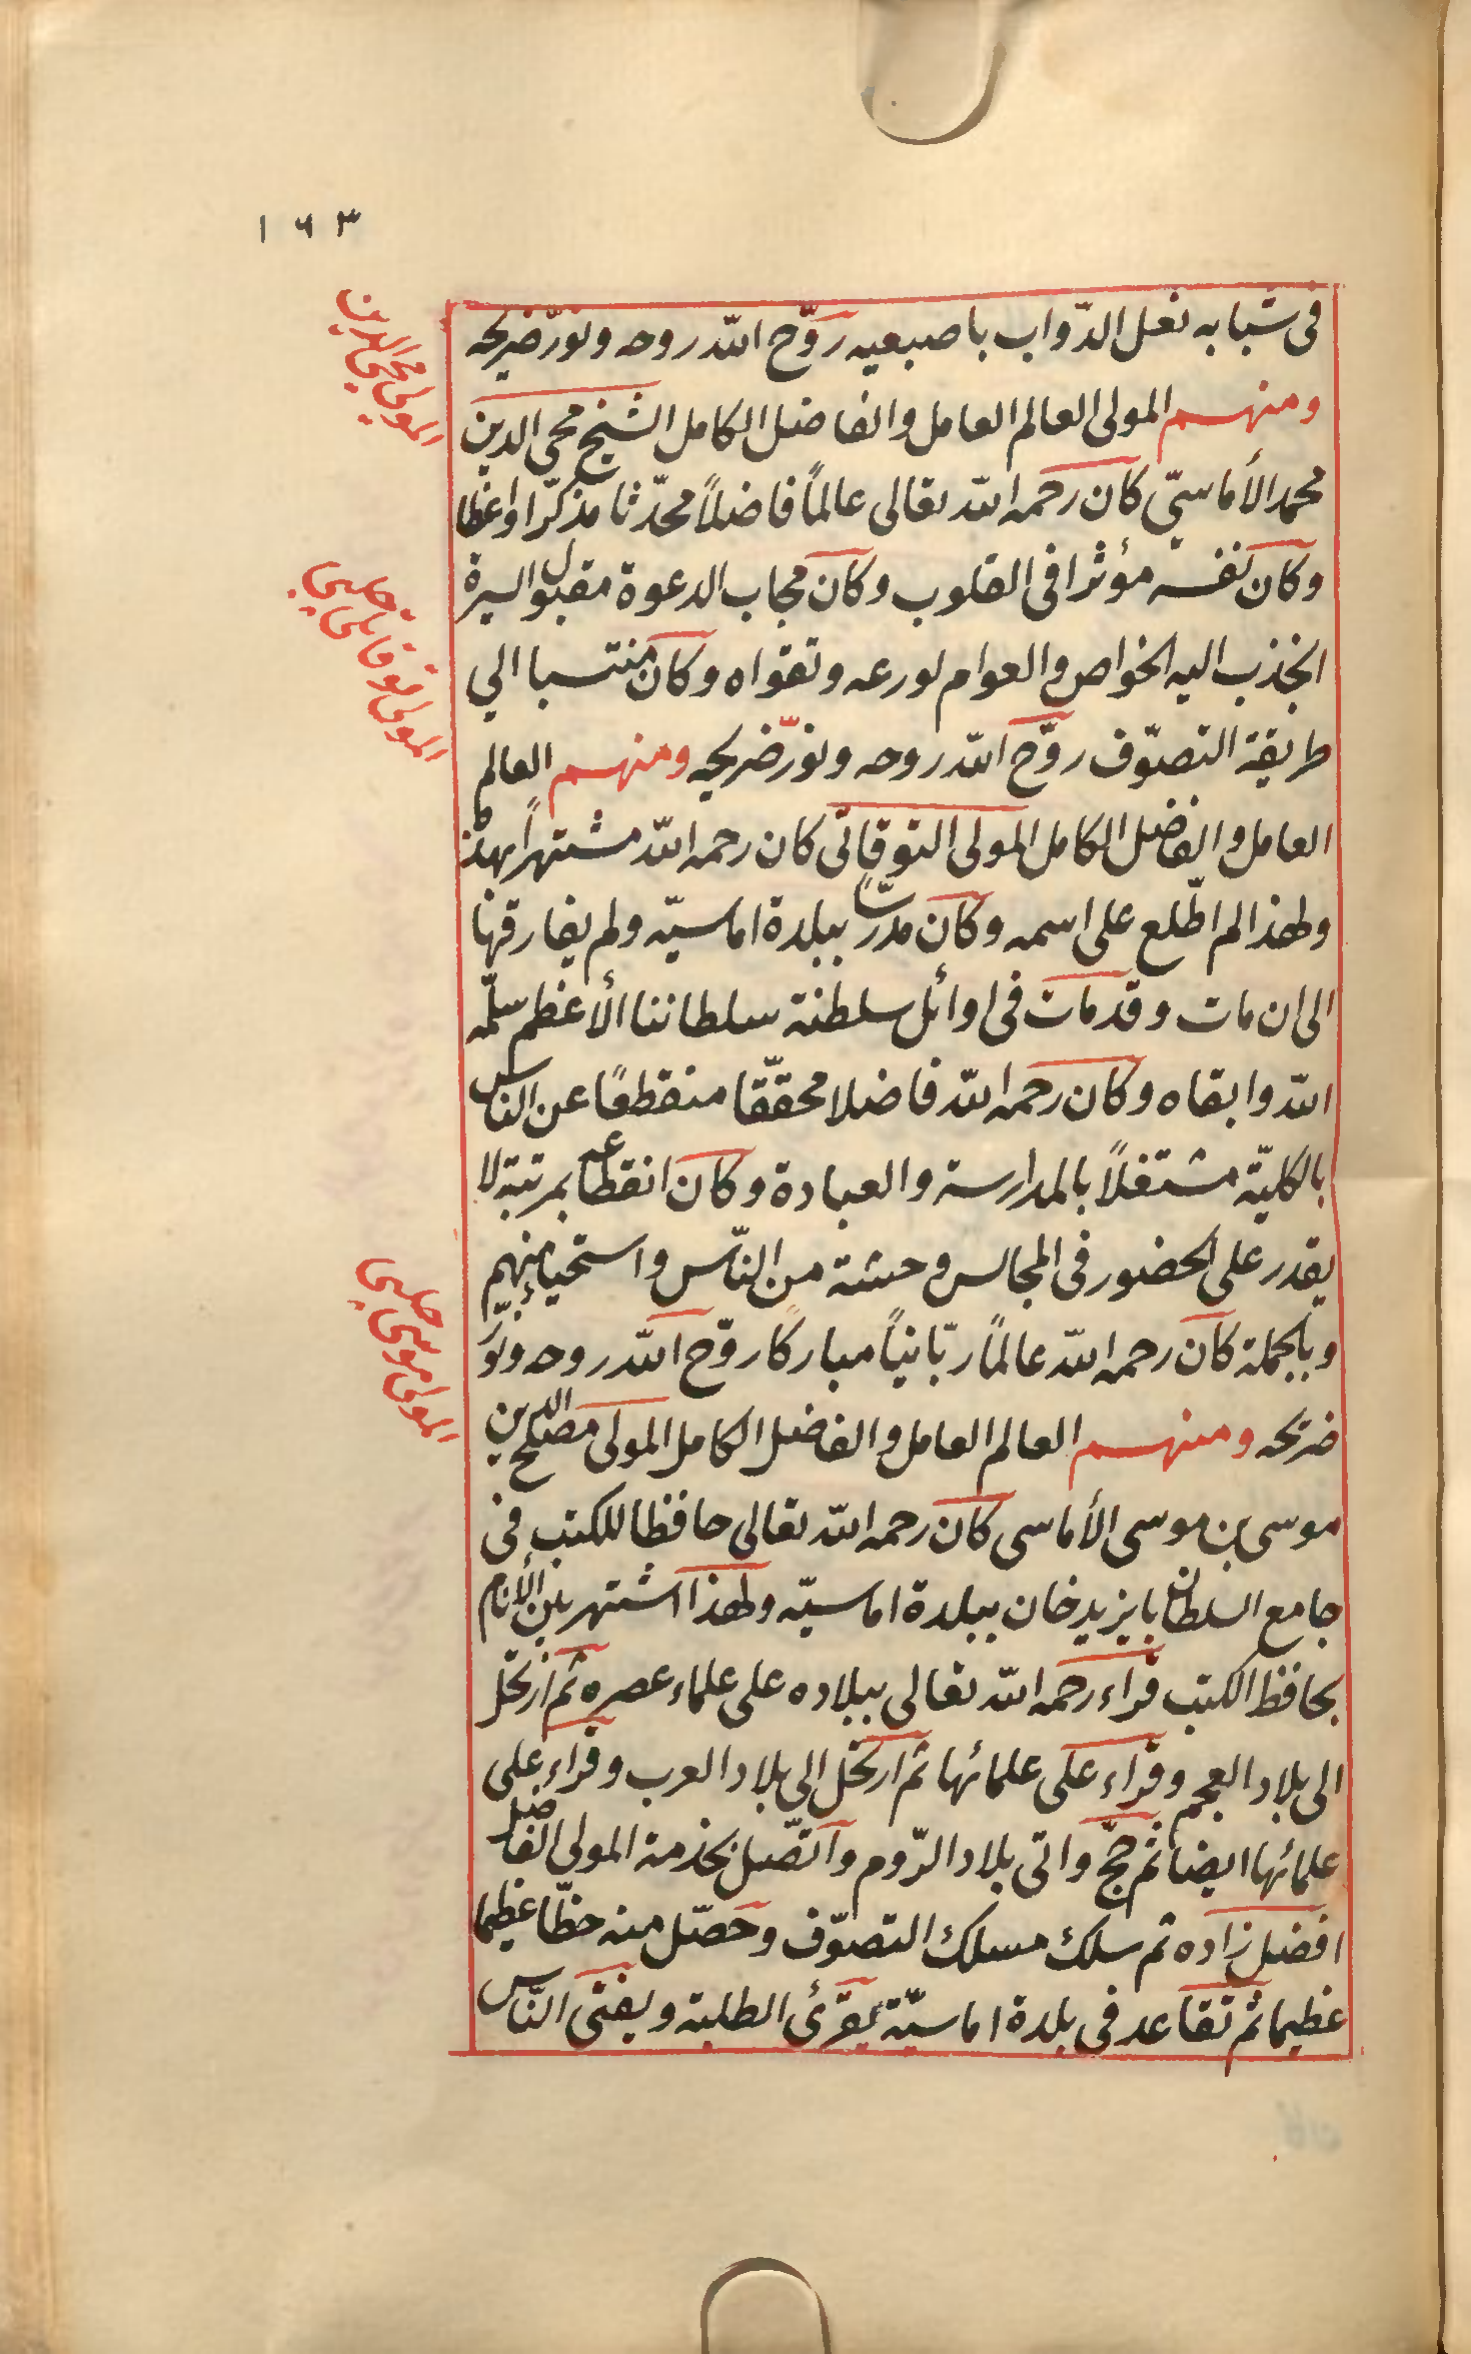 ١٦٣
فى شبابه نعل الدّواب باصبعيه روّح اللّه روحه ونوّر ضريحه
المولى محيى الدين
ومنهم المولى العالم العامل والفاضل الكامل الشيخ محيى الدين
محمد الأماسىّ كان رحمه اللّه تعالى عالماً فاضلاً محدّثا مذكّرا واعظا
وكان نفسه مؤثرا فى القلوب وكان مجاب الدعوة مقبول السيرة
انجذب اليه الخواص والعوام لورعه وتقواه وكان منتسبا الى
المولى توقاتى چلبى
طريقة التصوّف روّح اللّه روحه ونوّر ضريحه ومنهم العالم
العامل والفاضل الكامل المولى التوقاتى كان رحمه اللّه مشتهراً بهذا
ولهذا لم اطّلع على اسمه وكان مدرّسا ببلدة اماسيّه ولم يفارقها
الى ان مات وقد مات فى اوائل سلطنة سلطاننا الأعظم سلّمه
اللّه وابقاه وكان رحمه اللّه فاضلا محقّقا منقطعًا عن الناس
بالكليّة مشتغلاً بالمدارسة والعبادة وكان انقطاعه بمرتبة لا
يقدر على الحضور فى المجالس وحشة من النّاس واستحياء منهم
المولى موسى چلبى
وبالجملة كان رحمه اللّه عالمًا ربّانيًا مباركًا روّح اللّه روحه ونوّر
ضريحه ومنهم العالم العامل والفاضل الكامل المولى مصلح الدين
موسى بن موسى الأماسى كان رحمه اللّه تعالى حافظا للكتب فى
جامع السلطان بايزيد خان ببلدة اماسيّه ولهذا اشتهر بين الأنام
بحافظ الكتب قراء رحمه اللّه تعالى ببلاده على علماء عصره ثم ارتحل
الى بلاد العجم وقراء على علمائها ثم ارتحل الى بلاد العرب وقراء على
علمائها ايضا ثم حجّ واتى بلاد الرّوم واتّصل بخدمة المولى الفاضل
افضل زاده ثم سلك مسلك التصوّف وحصّل منه حظّا عظيما
عظيما ثم تقاعد فى بلدة اماسيّة يقرئ الطلبة ويفتى النّاس